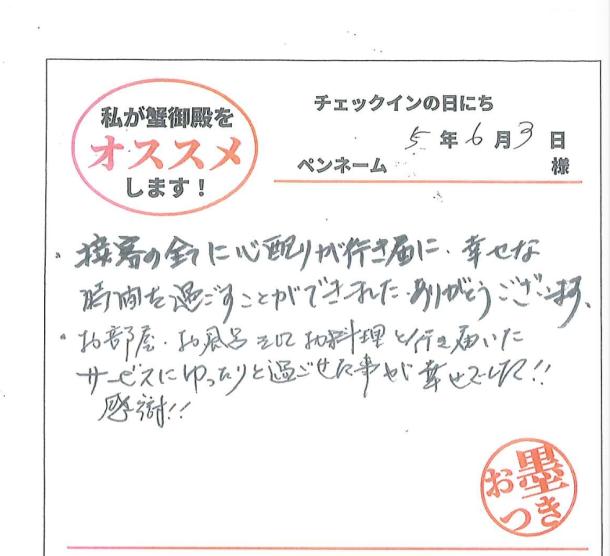 私が蟹御殿を
オススメ
します!
チェックインの日にち
5年6月3日
ペンネーム 様
・接客の全てに心配りが行き届に、幸せな
時間を過ごすことができました。ありがとうございます、
・お部屋・お風呂そしてお料理と行き届いた
サービスにゆったりと過ごせた事が幸せでした!!
感謝!!
お墨
つき